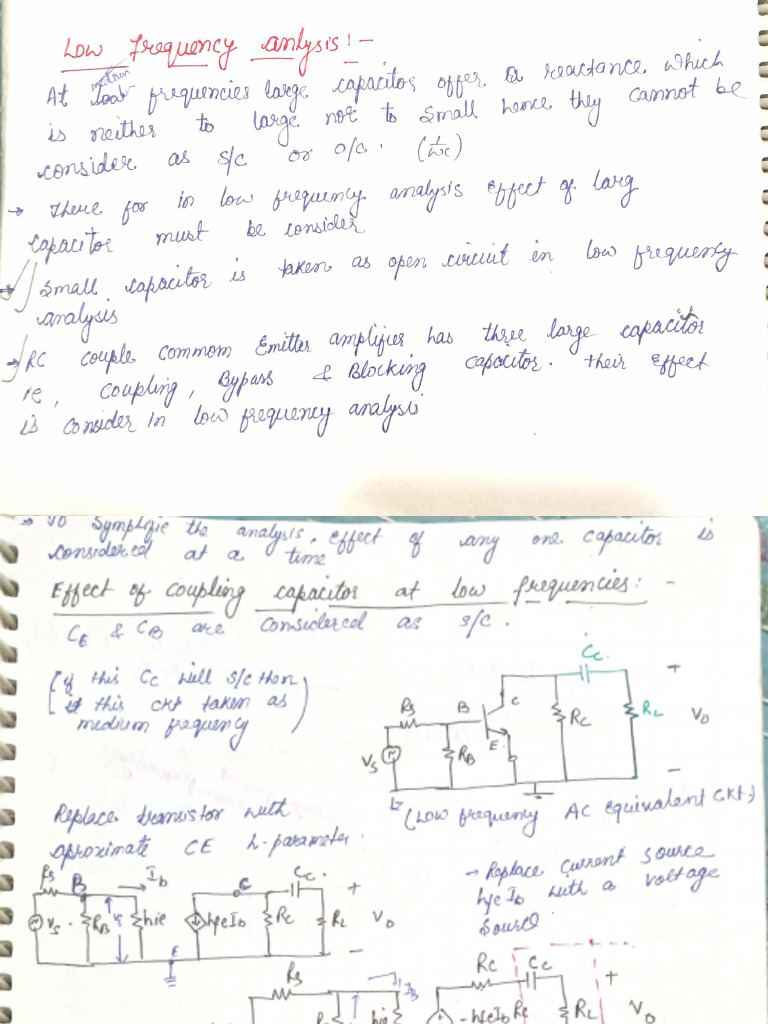 Low frequency anlysis :-
At medium frequencies large capacitor offer a reactance which
is neither to large nor to small hence they cannot be
consider as s/c or o/c. (1/ωc)
→ There for in low frequency analysis effect of larg
capacitor must be consider
→ Small capacitor is taken as open circuit in low frequency
analysis
→ RC couple common Emitter amplifier has three large capacitor
ie, coupling, Bypass & Blocking capacitor. their effect
is consider in low frequency analysis
→ To Symplifie the analysis, effect of any one capacitor is
considered at a time
Effect of coupling capacitor at low frequencies: -
CE & CB are considered as s/c.
if this Cc will s/c then
this ckt taken as
medium frequency
Cc.
Rs B C E RB Vs RC RL Vo + -
(Low frequency AC equivalent ckt)
Replace transistor with
aproximate CE h-parameter.
→ Replace current source
hfe Ib with a voltage
source
Rs B Ib C Cc. +
Vs RB hie hfeIb RC RL Vo
E -
Rs IB RC Cc +
hie -hfeIb Rc RL Vo